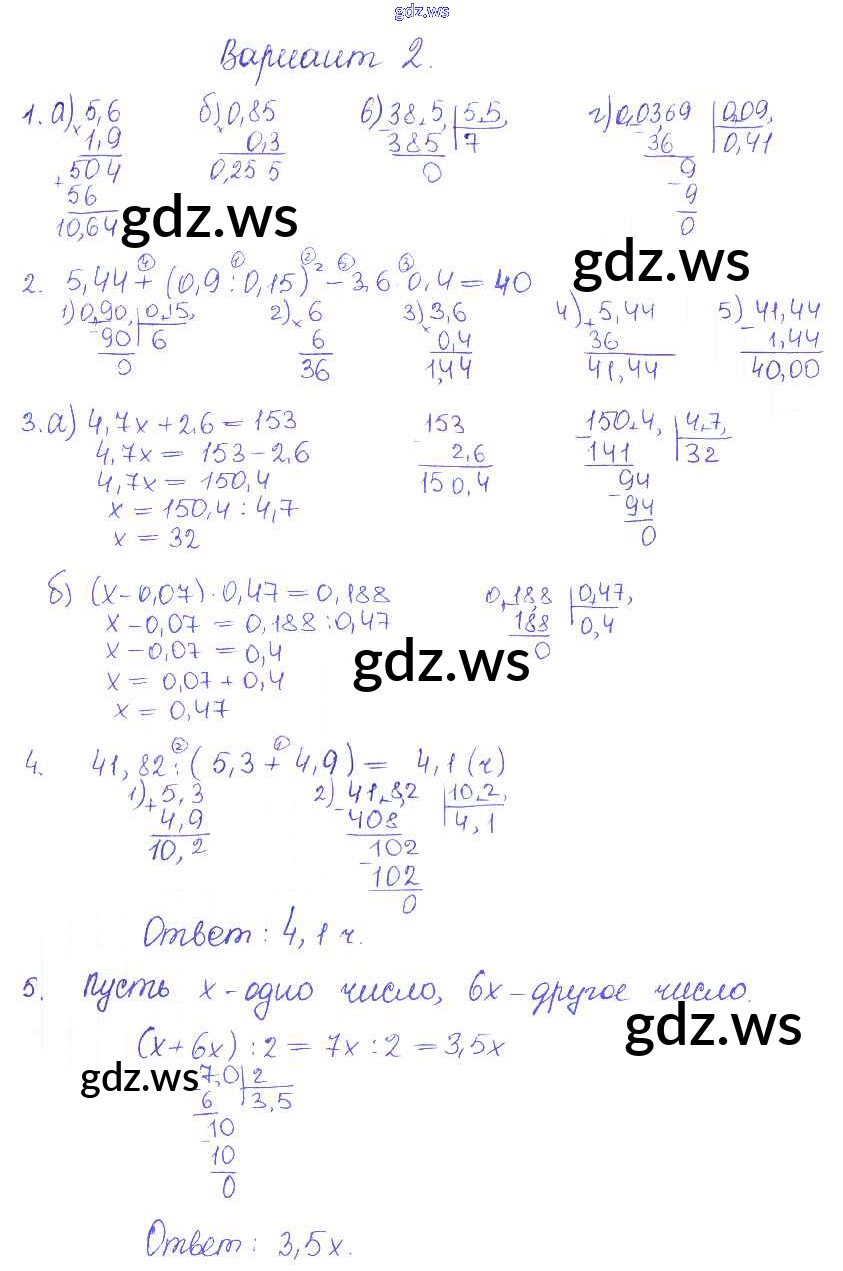 gdz.ws
Вариант 2.
1. а) 5,6 б) 0,85 в) 38,5, | 5,5, г) 0,0369 | 0,09,
× 1,9 × 0,3 - 385 | 7 - 36 | 0,41
504 0,255 0 9
+ 56 - 9
10,64 0
gdz.ws
gdz.ws
2. 5,44 + (0,9 : 0,15)² - 3,6 · 0,4 = 40
1) 0,90, | 0,15, 2) × 6 3) 3,6 4) + 5,44 5) 41,44
- 90 | 6 6 × 0,4 36 - 1,44
0 36 1,44 41,44 40,00
3. а) 4,7x + 2,6 = 153 153 150,4, | 4,7,
4,7x = 153 - 2,6 - 2,6 - 141 | 32
4,7x = 150,4 150,4 94
x = 150,4 : 4,7 - 94
x = 32 0
б) (x - 0,07) · 0,47 = 0,188 0,188 | 0,47,
x - 0,07 = 0,188 : 0,47 188 | 0,4
x - 0,07 = 0,4 0
gdz.ws
x = 0,07 + 0,4
x = 0,47
4. 41,82 : (5,3 + 4,9) = 4,1 (ч)
1) + 5,3 2) 41,82 | 10,2,
4,9 - 408 | 4,1
10,2 102
- 102
0
Ответ: 4,1 ч.
5. Пусть x - одно число, 6x - другое число.
gdz.ws
(x + 6x) : 2 = 7x : 2 = 3,5x
gdz.ws
7,0 | 2
6 | 3,5
10
- 10
0
Ответ: 3,5x.